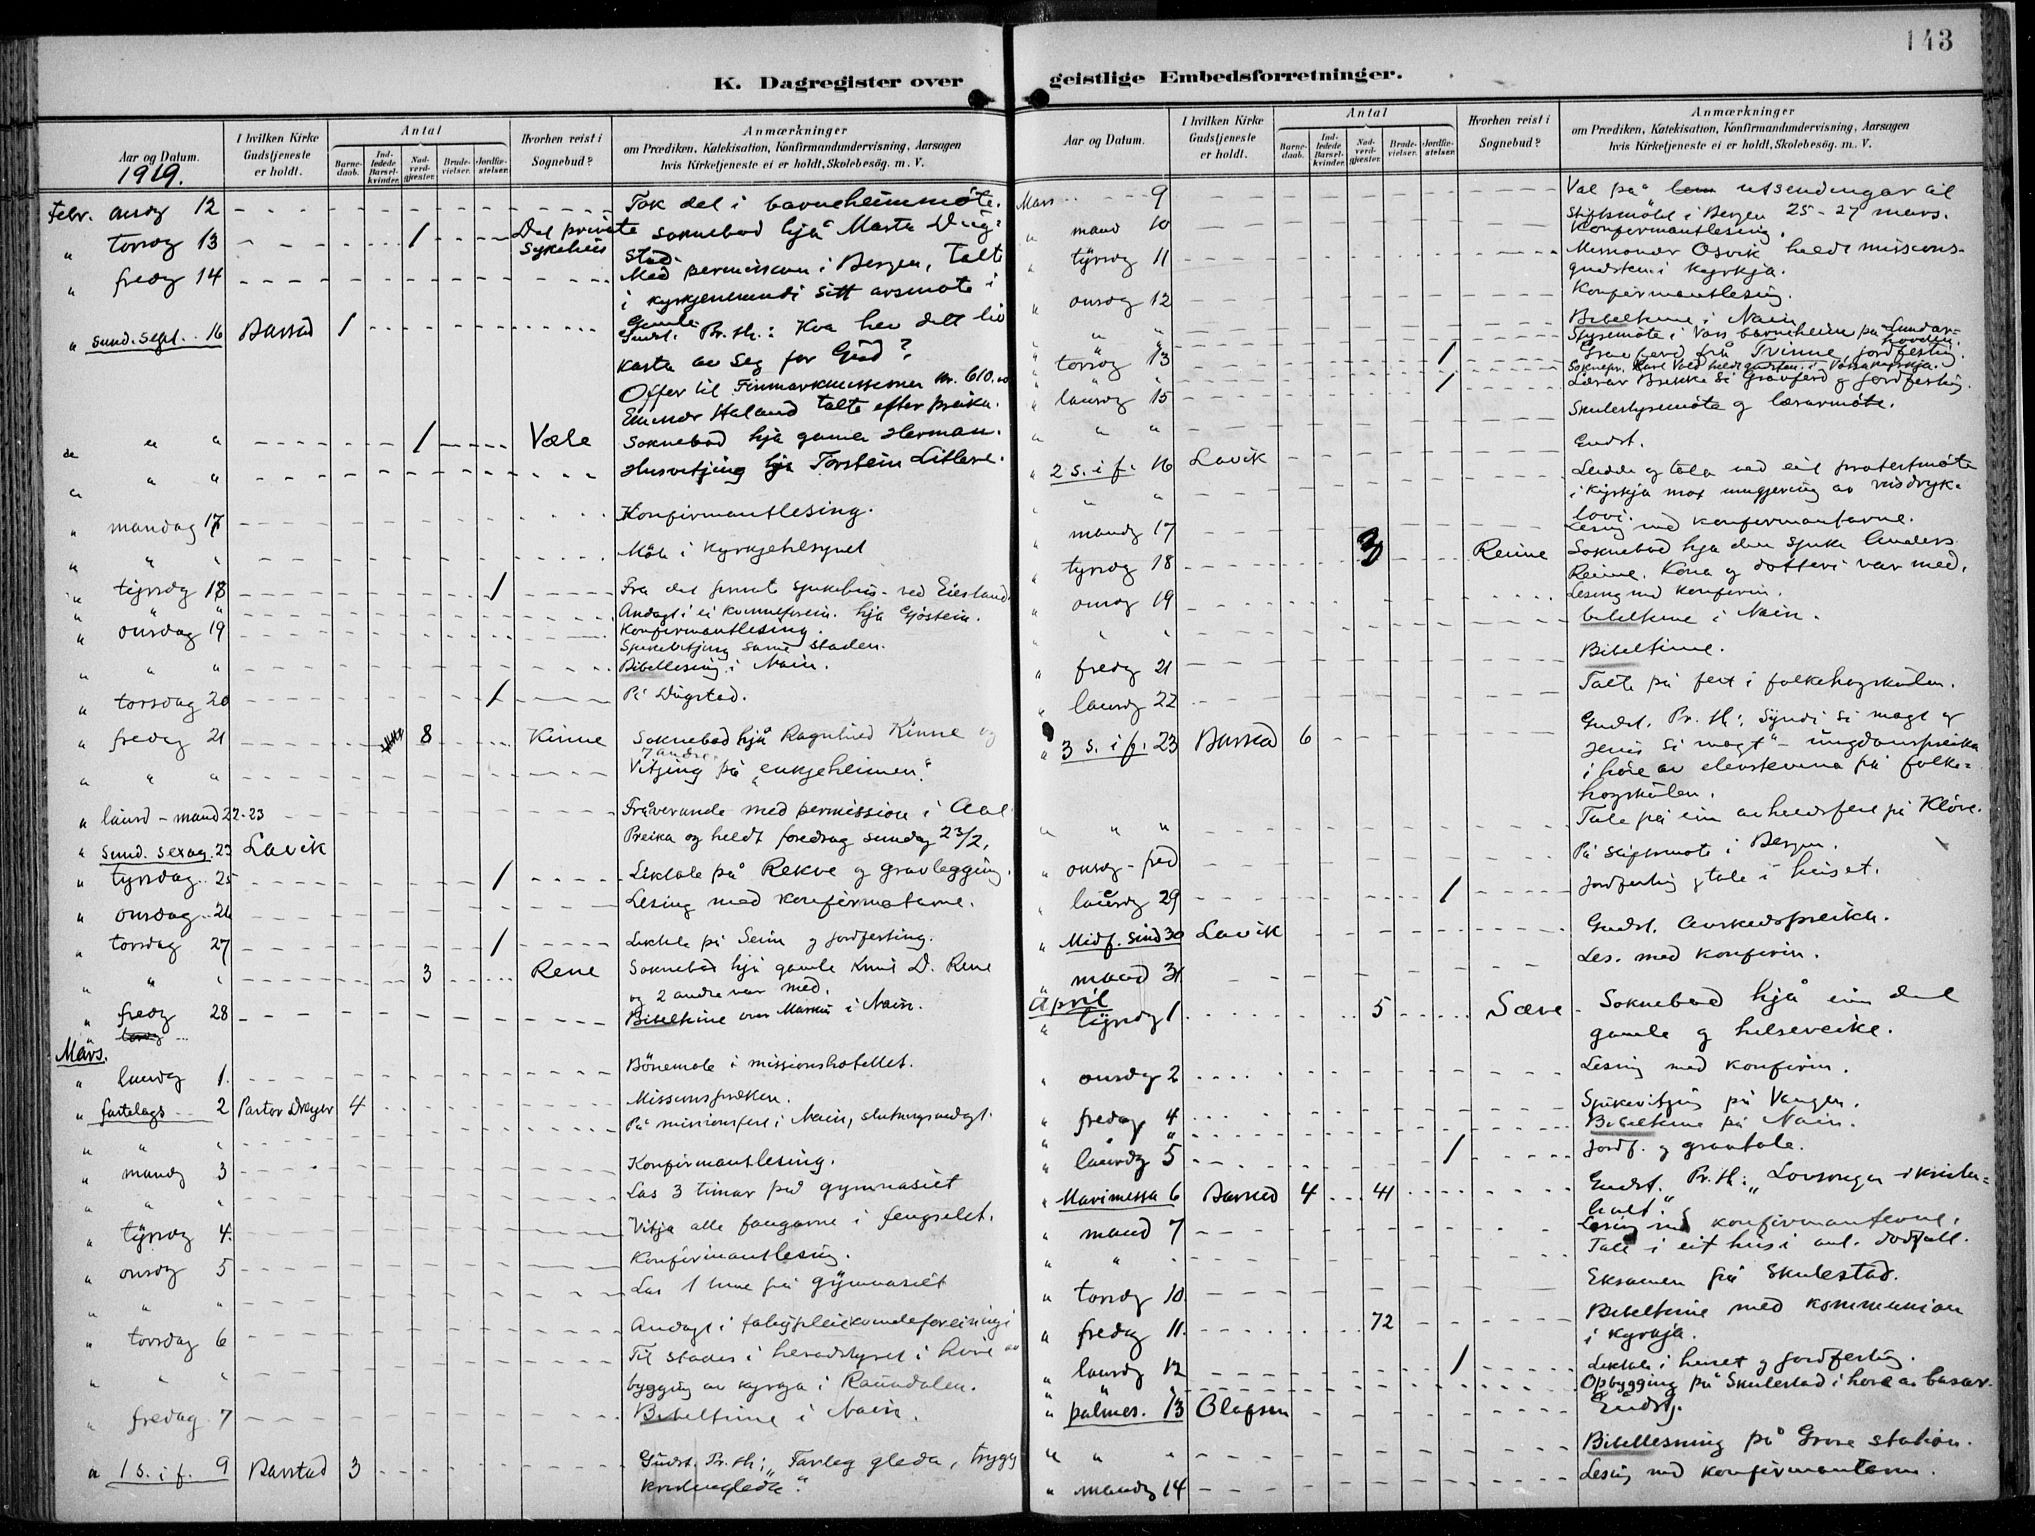 143
K. Dagregister over geistlige Embedsforretninger.
Aar og Datum.
I hvilken Kirke Gudstjeneste er holdt.
Antal
Barne-daab.
Ind-ledede Barsel-kvinder.
Nad-verd-gjester.
Brude-vielser.
Jordfæ-stelser.
Hvorhen reist i Sognebud?
Anmærkninger
om Prædiken, Katekisation, Konfirmandundervisning, Aarsagen
hvis Kirketjeneste ei er holdt, Skolebesøg. m. V.
1919.
Febr. onsdg 12 Tok del i barneheimmöte.
" torsdg 13 1 Det private Sykehus soknebod hjå Marta Dug=
stad.
" fredg 14 Med permission i Bergen, talte
i kyrkjens sitt årsmöte i
" sund. sept. 16 Barstad 1 Gudst. Pr. th.: Kva hev det liv
kasta av seg for Gud?
Offer til Finmarkmissionen kr. 610.00
Einar Haland talte efter preika.
" " " 1 Væle Soknebod hjå gamle Herman.
" " " Husvitjing hjå Torstein Litlere.
" mandag 17 Konfirmantlesing.
" " " Möte i kyrkjetilsynet
" tysdg 18 1 Fra det private sjukehus ved Eiesland
" " " Andagt i ei kvinneforein. hjå Gjöstein.
" onsdag 19 Konfirmantlesing.
Sjukevitjing same staden.
" " " Bibellesing i Nain.
" torsdag 20 1 På Dugstad.
" fredag 21 8 Kinne Soknebod hjå Ragnhild Kinne og
7 andre
" " " Vitjing på "enkjeheimen".
" laurd - mand 22-23 Fråverande med permission i Aal
Preika og heldt foredrag sundag 23/2.
" sund. sexag. 23 Lavik
" tysdag 25 1 Liktale på Rekve og gravlegging.
" onsdag 26 Lesing med konfirmaterne.
" torsdag 27 1 Liktale på Seim og jordfesting.
" " " 3 Rene Soknebod hjå gamle Knut D. Rene
og 2 andre var med.
" fredg 28 Bibeltime over Markus i Nain.
Mars.
" laurdg 1. Bönemöte i missionshotellet.
" fastelags 2 Pastor Dreyer 4 Missionspreken.
" " " På missionsfest i Nain, slutningsandagt.
" mandg 3 Konfirmantlesing.
" " " Las 3 timar på gymnasiet
" tysdg 4. Vitja alle fangarne i fengselet.
" onsdg 5 Konfirmantlesing.
" " " Las 1 time på gymnasiet
" torsdag 6 Andagt i
" " " Til stades i heradstyret i höve av
bygging av kyrkja i Raundalen.
" fredag 7 Bibeltime i Nain.
" 1 s. i f. 9 Barstad 3 Gudst. Pr. th.: "Farleg gleda, trygg
kristengleda".
Aar og Datum.
I hvilken Kirke Gudstjeneste er holdt.
Antal
Barne-daab.
Ind-ledede Barsel-kvinder.
Nad-verd-gjester.
Brude-vielser.
Jordfæ-stelser.
Hvorhen reist i Sognebud?
Anmærkninger
om Prædiken, Katekisation, Konfirmandundervisning, Aarsagen
hvis Kirketjeneste ei er holdt, Skolebesög. m. V.
Mars 9 Val på utsendingar til
Stiftsmötet i Bergen 25 - 27 mars.
" mand 10 Konfirmantlesing.
" tysdg 11 Missionær Osvik heldt missions-
gudsten. i kyrkja.
" onsdg 12 Konfirmantlesing.
Bibeltime i Nain
" " " Styremöte i Voss barneheim på Lundar=
hovden.
" torsdg 13 1 Gravferd frå Tvinne, jordfesting.
Soknepr. Karl Vold heldt gudsten. i Vossakyrkja.
" laurdg 15 1 Lærar Brekke si Gravferd og jordfesting.
" " " Skulestyremöte og lærarmöte.
" 2 s. i f. 16 Lavik Gudst.
" " " Leidde og tala ved eit protestmöte
i kyrkja mot umgjering av rusdryk=
lovi.
" mandg 17 Lesing med konfirmantarne.
" tysdg 18 3 Reime Soknebod hjå den sjuke Anders
Reime. Kona og dotteri var med.
" onsdg 19 Lesing med konfirm.
" " " bibeltime i Nain.
" fredg 21 Bibeltime.
" laurdg 22 Talte på fest i folkehögskulen.
" 3 s. i f. 23 Barstad 6 Gudst. Pr. th: "Syndi si magt og
Jesus si magt" - ungdomspreika
i höve av elevstemna på folke=
högskulen.
" " " Tale på ein avheldsfest på Klöve.
" onsdg - fred På stiftsmöte i Bergen.
" laurdg 29 1 Jordfesting og tale i huset.
" Midf. sund 30 Lavik Gudst. Avskedspreika.
" mand 31 Les. med konfirm.
April
" tysdg 1. 5 Sæve Soknebod hjå ein del
gamle og helseveike.
" onsdg 2 Lesing med konfirm.
" fredag 4 Sjukevitjing på Vangen.
" " " Bibeltime på Nain.
" laurdg 5 1 Jordf. og gravtale.
" Marimessa 6 Barstad 4 41 Gudst. Pr. th: "Lovsongen i kristen=
livet."
" mand 7 Lesing med konfirmanterne.
" " " Tale i eit hus i anl. dödsfall.
" torsdg 10 Eksamen på Skulestad.
" fredag 11. 72 Bibeltime med kommunion
i kyrkja.
" laurdg 12 1 Liktale i huset og jordfesting.
" " " Opbygging på Skulestad i höve av basar.
" palmes. 13 Olafsen Gudstj.
" " " Bibellesning på Grove station.
" mandg 14 Lesing med konfirmantarne.